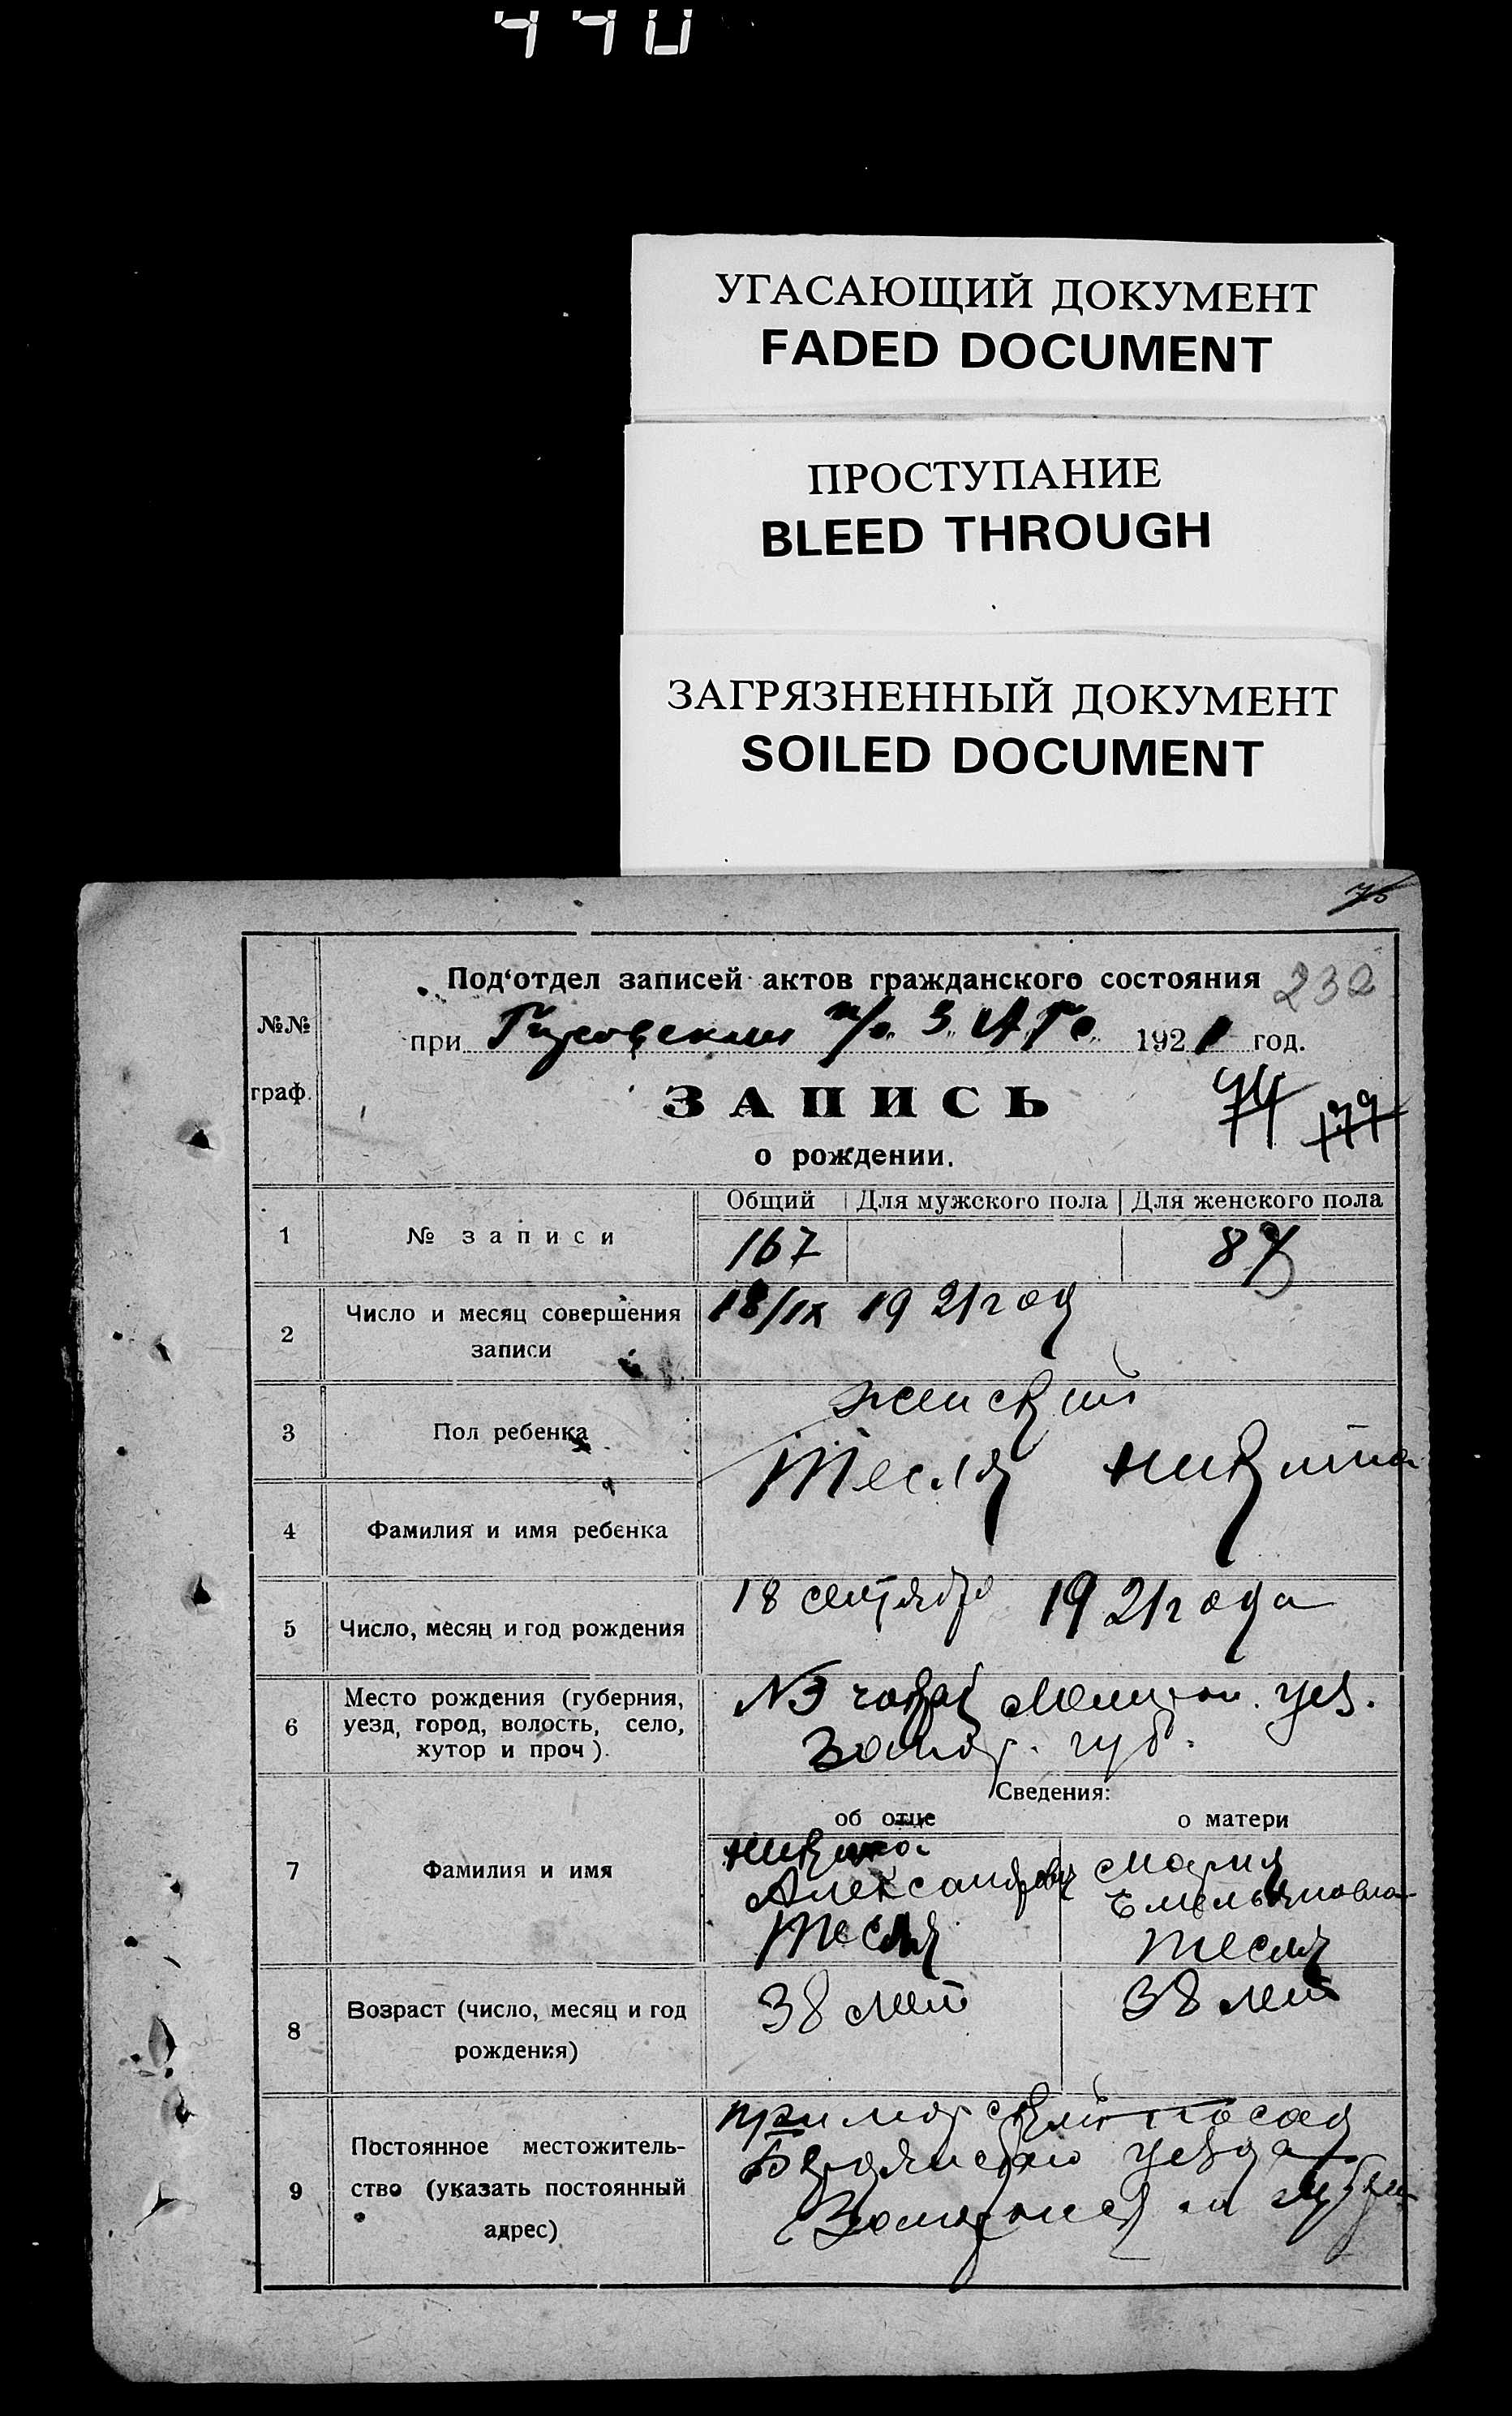 УГАСАЮЩИЙ ДОКУМЕНТ
FADED DOCUMENT
ПРОСТУПАНИЕ
BLEED THROUGH
ЗАГРЯЗНЕННЫЙ ДОКУМЕНТ
SOILED DOCUMENT
Под‘отдел записей актов гражданского состояния 232
№№
при п/о. З. А. Гс. 1921 год.
граф.
ЗАПИСЬ
о рождении.
Общий Для мужского пола Для женского пола
1 № записи 167
2 Число и месяц совершения записи 18/IX 1921 год
3 Пол ребенка женский
4 Фамилия и имя ребенка Тесля Никита
5 Число, месяц и год рождения 18 сентября 1921 года
6 Место рождения (губерния, уезд, город, волость, село, хутор и проч). уез.
губ.
Сведения:
об отце о матери
7 Фамилия и имя
Никита Мария
Александрович Емельяновна
Тесля Тесля
8 Возраст (число, месяц и год рождения) 38 лет 38 лет
9 Постоянное местожительство (указать постоянный адрес)
посад
Бердянского уезда